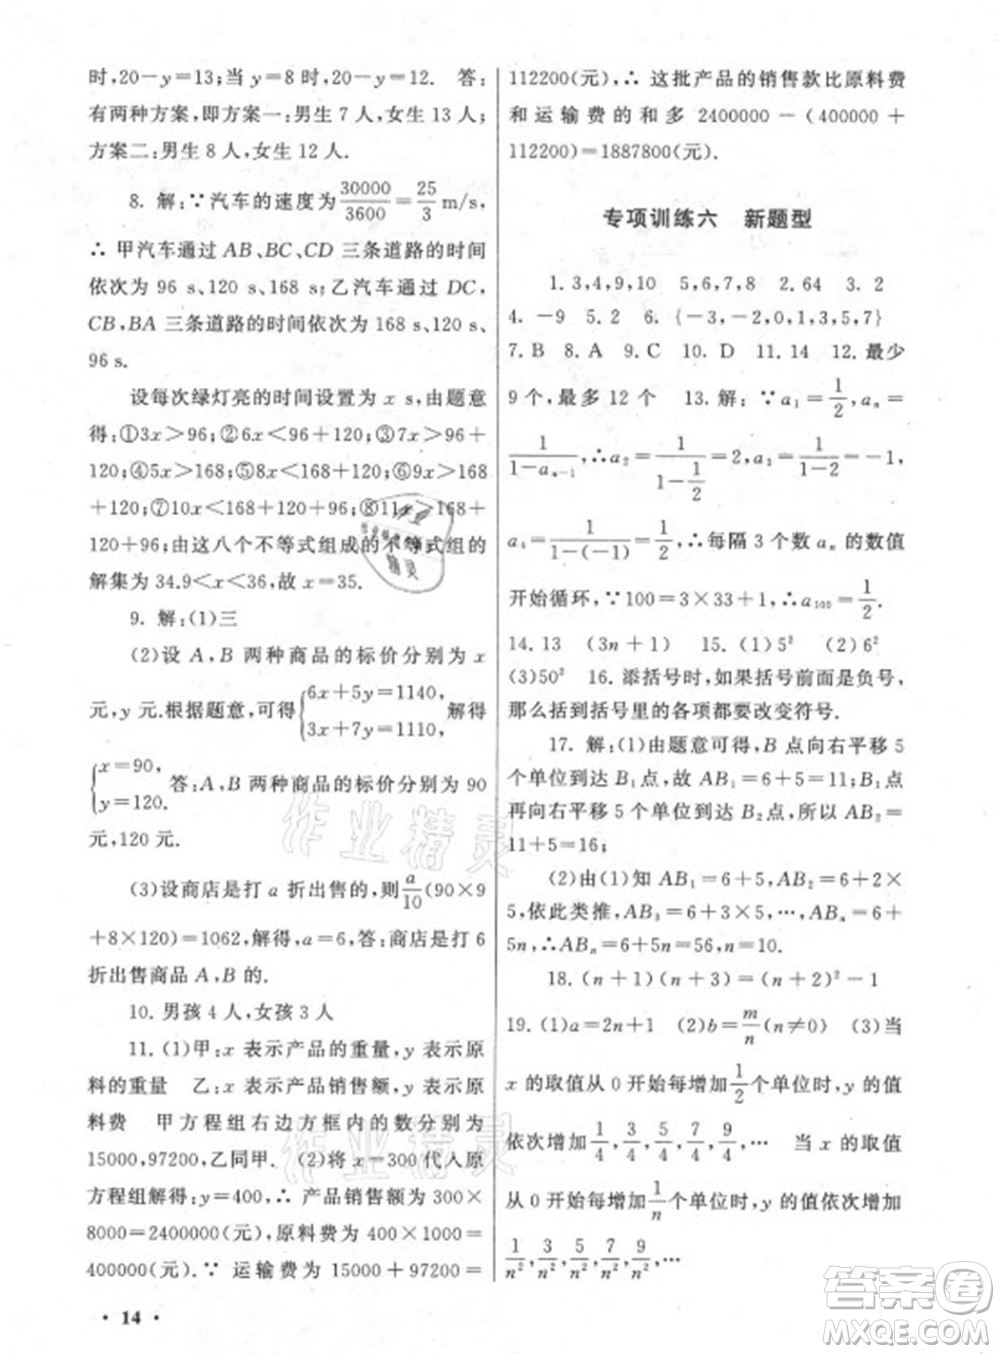 时,20－y＝13;当 y＝8 时,20－y＝12. 答:
有两种方案,即方案一:男生 7 人,女生 13 人;
方案二:男生 8 人,女生 12 人.
8. 解:∵汽车的速度为30000/3600＝25/3 m/s,
∴ 甲汽车通过 AB,BC,CD 三条道路的时间
依次为 96 s、120 s、168 s;乙汽车通过 DC,
CB,BA 三条道路的时间依次为 168 s、120 s、
96 s.
设每次绿灯亮的时间设置为 x s,由题意
得:①3x＞96;②6x＜96＋120;③7x＞96＋
120;④10x＞168;⑤9x＜96＋120＋168;⑥6x＞168
＋120;⑦5x＜168＋120;⑧11x＞168＋120＋96.
由由这八个不等式组成的不等式组的
解集为 34.9＜x＜36,故 x＝35.
9. 解:(1)三
(2)设 A,B 两种商品的标价分别为 x
元,y 元.根据题意,可得{6x＋5y＝1140, 3x＋7y＝1110, 解得
{x＝90, y＝120. 答:A,B 两种商品的标价分别为 90
元,120 元.
(3)设商店是打 a 折出售的,则a/10(90×9
＋8×120)＝1062,解得,a＝6,答:商店是打 6
折出售商品 A,B 的.
10. 男孩 4 人,女孩 3 人
11. (1)甲:x 表示产品的重量,y 表示原
料的重量 乙:x 表示产品销售额,y 表示原
料费 甲方程组右边方框内的数分别为
15000,97200,乙同甲. (2)将 x＝300 代入原
方程组解得:y＝400,∴ 产品销售额为 300×
8000＝2400000(元),原料费为 400×1000＝
400000(元).∵ 运输费为 15000＋97200＝
· 14 ·
112200(元),∴ 这批产品的销售款比原料费
和运输费的和多 2400000－(400000＋
112200)＝1887800(元).
专项训练六 新题型
1.3,4,9,10 5,6,7,8 2.64 3.2
4.－9 5.2 6.{－3,－2,0,1,3,5,7}
7.B 8.A 9.C 10.D 11.14 12.最少
9 个,最多 12 个 13.解:∵a₁＝1/2,aₙ＝
1/(1－aₙ₋₁),∴a₂＝1/(1－1/2)＝2,a₃＝1/(1－2)＝－1,
a₄＝1/(1－(－1))＝1/2,∴每隔 3 个数 aₙ 的数值
开始循环,∵100＝3×33＋1,∴a₁₀₀＝1/2.
14.13 (3n＋1) 15.(1)5² (2)n²
(3)50² 16.添括号时,如果括号前面是负号,
那么括到括号里的各项都要改变符号.
17.解:(1)由题意可得,B 点向右平移 5
个单位到达 B₁ 点,故 AB₁＝6＋5＝11;B₁
再向右平移 5 个单位到达 B₂ 点,所以 AB₂＝
11＋5＝16;
(2)由(1)知 AB₁＝6＋5,AB₂＝6＋2×
5,依此类推,AB₃＝6＋3×5,…,ABₙ＝6＋
5n,∴ABₙ＝6＋5n＝56,n＝10.
18.(n＋1)(n＋3)＝(n＋2)²－1
19.(1)a＝2n＋1 (2)b＝m/n(n≠0) (3)当
x 的取值从 0 开始每增加1/2个单位时,y 的值
依次增加1/4,3/4,5/4,7/4,9/4,… 当 x 的取值
从 0 开始每增加1/n个单位时,y 的值依次增加
1/n²,3/n²,5/n²,7/n²,9/n²,…
作业精灵
作业精灵
答案圈
MXQE.COM